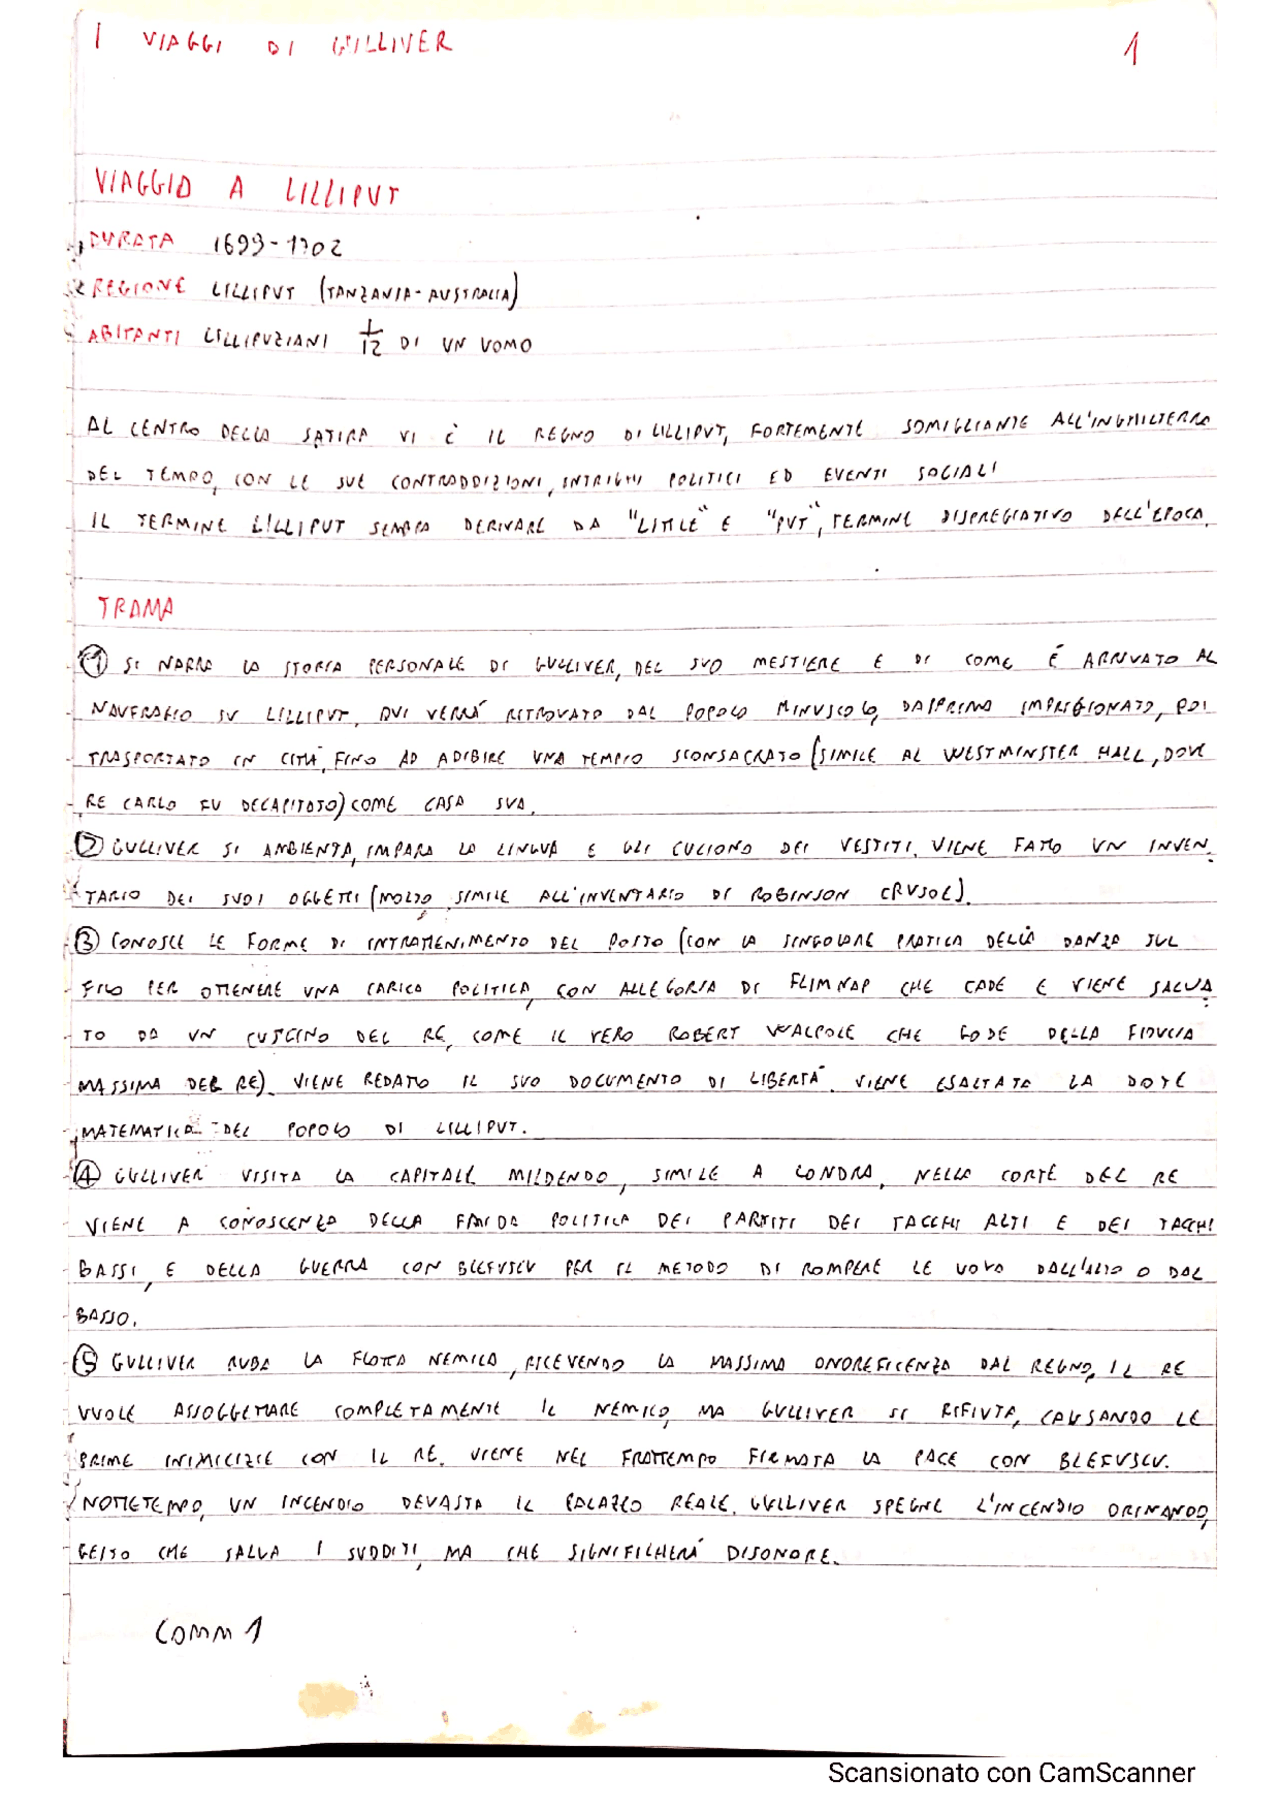 I VIAGGI DI GULLIVER
1
VIAGGIO A LILLIPUT
DURATA 1699-1702
REGIONE LILLIPUT (TANZANIA-AUSTRALIA)
ABITANTI LILLIPUZIANI 1/12 DI UN UOMO
AL CENTRO DELLA SATIRA VI È IL REGNO DI LILLIPUT, FORTEMENTE SOMIGLIANTE ALL'INGHILTERRA
DEL TEMPO, CON LE SUE CONTRADDIZIONI, INTRIGHI POLITICI ED EVENTI SOCIALI
IL TERMINE LILLIPUT SEMBRA DERIVARE DA "LITTLE" E "PUT", TERMINE DISPREGIATIVO DELL'EPOCA.
TRAMA
1 SI NARRA LA STORIA PERSONALE DI GULLIVER, DEL SUO MESTIERE E DI COME È ARRIVATO AL
NAUFRAGIO SU LILLIPUT, QUI VERRÀ RITROVATO DAL POPOLO MINUSCOLO, DAPPRIMA IMPRIGIONATO, POI
TRASPORTATO IN CITTÀ, FINO AD ADIBIRE UNA TEMPIO SCONSACRATO (SIMILE AL WESTMINSTER HALL, DOVE
RE CARLO FU DECAPITATO) COME CASA SUA.
2 GULLIVER SI AMBIENTA, IMPARA LA LINGUA E GLI CUCIONO DEI VESTITI. VIENE FATTO UN INVEN
TARIO DEI SUOI OGGETTI (MOLTO SIMILE ALL'INVENTARIO DI ROBINSON CRUSOE).
3 CONOSCE LE FORME DI INTRATTENIMENTO DEL POSTO (CON LA SINGOLARE PRATICA DELLA DANZA SUL
FILO PER OTTENERE UNA CARICA POLITICA, CON ALLEGORIA DI FLIMNAP CHE CADE E VIENE SALVA
TO DA UN CUSCINO DEL RE, COME IL VERO ROBERT WALPOLE CHE GODE DELLA FIDUCIA
MASSIMA DEL RE). VIENE REDATTO IL SUO DOCUMENTO DI LIBERTÀ. VIENE ESALTATA LA DOTE
MATEMATICA DEL POPOLO DI LILLIPUT.
4 GULLIVER VISITA LA CAPITALE MILDENDO, SIMILE A LONDRA, NELLA CORTE DEL RE
VIENE A CONOSCENZA DELLA FAIDA POLITICA DEI PARTITI DEI TACCHI ALTI E DEI TACCHI
BASSI, E DELLA GUERRA CON BLEFUSCU PER IL METODO DI ROMPERE LE UOVA DALL'ALTO O DAL
BASSO.
5 GULLIVER RUBA LA FLOTTA NEMICA, RICEVENDO LA MASSIMA ONOREFICENZA DAL REGNO, IL RE
VUOLE ASSOGGETTARE COMPLETAMENTE IL NEMICO, MA GULLIVER SI RIFIUTA, CAUSANDO LE
PRIME INIMICIZIE CON IL RE. VIENE NEL FRATTEMPO FIRMATA LA PACE CON BLEFUSCU.
NOTTETEMPO, UN INCENDIO DEVASTA IL PALAZZO REALE. GULLIVER SPEGNE L'INCENDIO ORINANDO,
GESTO CHE SALVA I SUDDITI, MA CHE SIGNIFICHERÀ DISONORE.
COMM 1
Scansionato con CamScanner